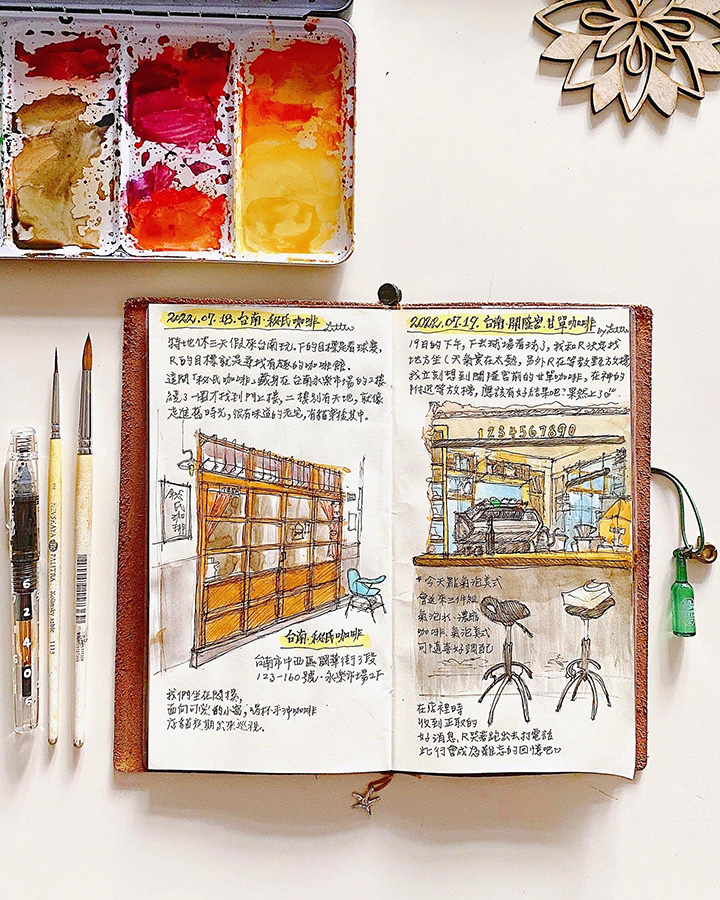 2022.07.18.台南·秘氏咖啡
特地休三天假來台南玩,下的目標是看球賽,
R的目標就是尋找有趣的咖啡館.
這間「秘氏咖啡」藏身在台南永樂市場的2樓
繞3一圈才找到門上樓,二樓別有天地,就像
走進舊時光,很有味道的老宅,有貓穿梭其中.
秘氏咖啡
台南·秘氏咖啡
台南市中西區國華街3段
123-160號·永樂市場2F
我們坐在閣樓,
面向可愛的小窗,喝杯手沖咖啡
店貓定期出來巡視.
2022.07.19.台南·開隆宮.甘單咖啡
19日的下午,下去球場看球了,我和R決定找
地方坐(天氣實在太熱,另外R在等教甄方放榜
我立刻想到開隆宮前的甘單咖啡,在神的
附近等放榜,應該有好結果吧?果然上3
1234567890
*今天點氣泡美式
會送來三件組
氣泡水·濃縮
咖啡·氣泡美式
可隨喜好調配
在店裡時
收到正取的
好消息,R哭著跑出去打電話
此行會成為難忘的回憶吧
6
2
4
0
6